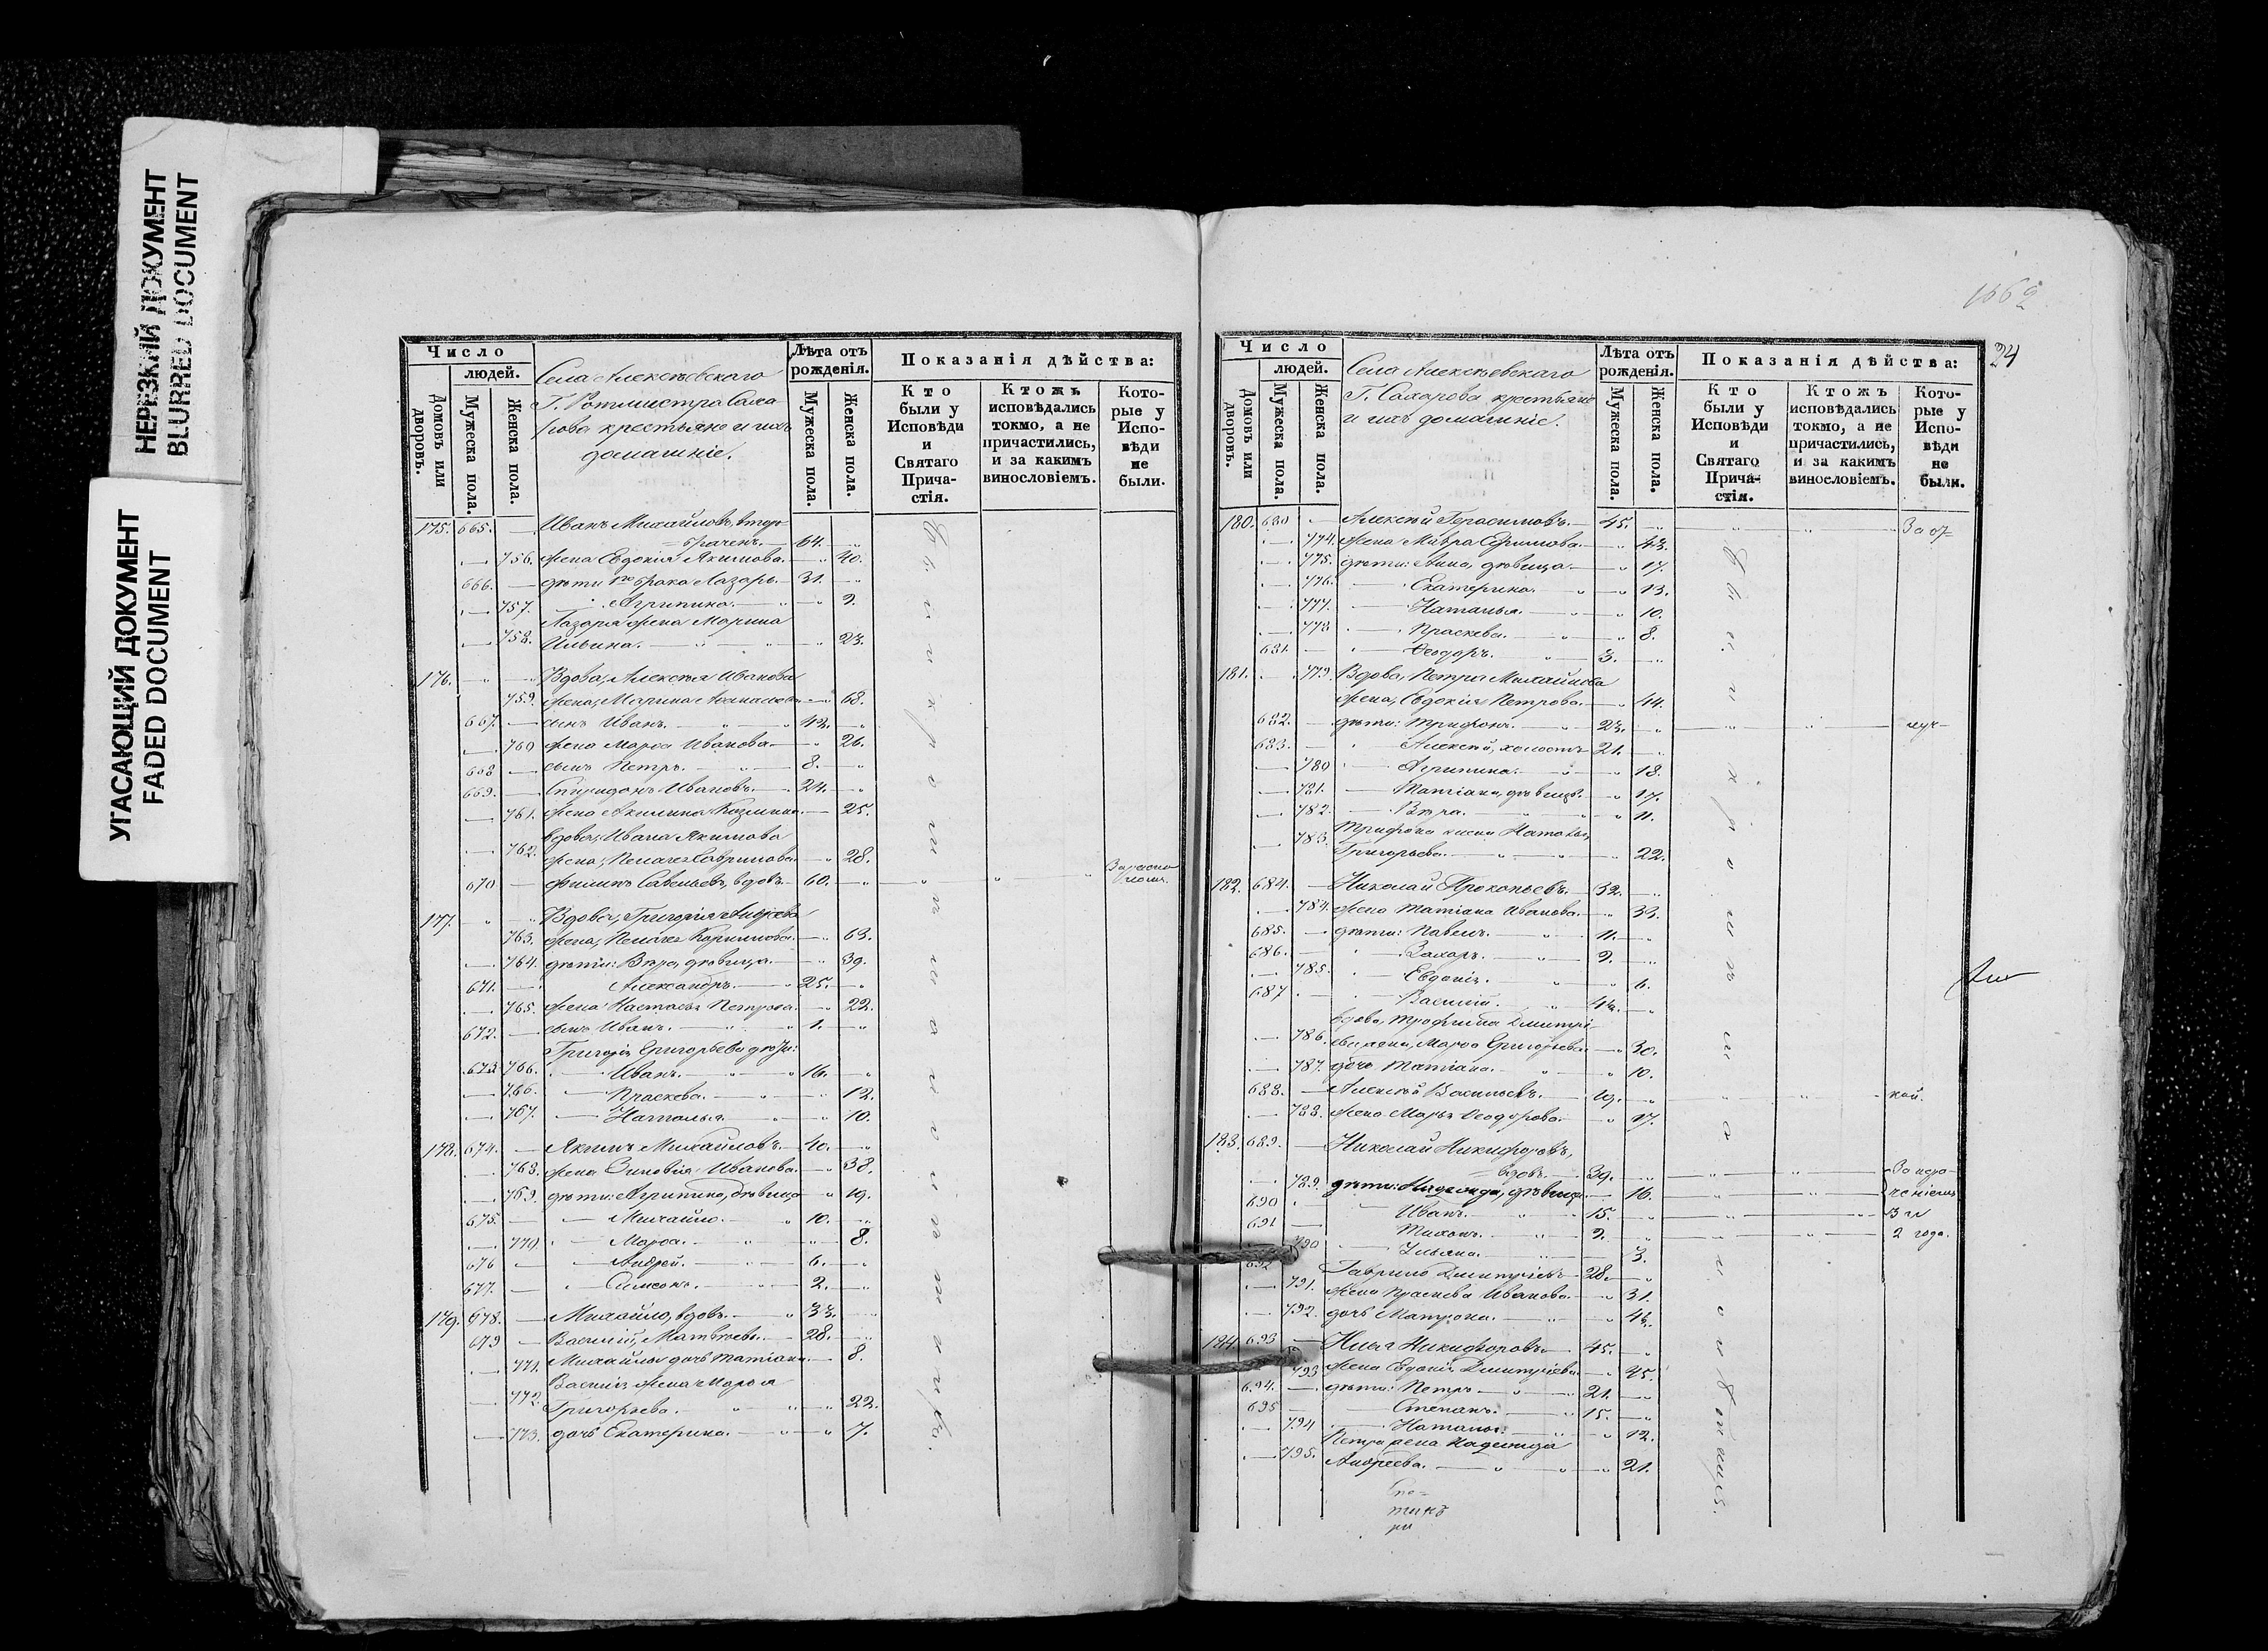 НЕРЕЗКИЙ ДОКУМЕНТ
BLURRED DOCUMENT
УГАСАЮЩИЙ ДОКУМЕНТ
FADED DOCUMENT
Число
людей.
Домовъ или дворовъ.
Мужеска пола.
Женска пола.
Села Алексѣевскаго
Г. Ротмистра Саха
рова крестьяне и ихъ
домашніе.
Лѣта отъ рожденія.
Мужеска пола.
Женска пола.
Показанія дѣйства:
Кто были у Исповѣди и Святаго Прича-стія.
Ктожъ исповѣдались токмо, а не причастились, и за какимъ винословіемъ.
Кото-рые у Испо-вѣди не были.
175. 665. Иванъ Михайловъ, втор-
браченъ. 64.
756. жена Евдокія Якимова. 40.
666. дѣти 1го брака Лазарь. 31.
757. Агрипина. 9.
Лазаря жена Марина
758. Ильина. 23.
176. Вдова, Алексѣя Иванова
759. жена, Марина 68.
667. сынъ Иванъ. 42.
760 жена Марѳа Иванова 26.
668 сынъ Петръ. 8.
669. Спиридонъ Ивановъ. 24.
761. жена Акилина Козмина. 25.
вдова, Ивана Якимова
762. жена, Пелагея 28.
670 Филипъ Савельевъ, вдовъ. 60.
177. Вдова, Григорія Андреева
763. жена, Пелагея 63.
764. дѣти: Вѣра, дѣвица. 39.
671. Александръ. 25.
765. жена Настасья Петрова. 22.
672. сынъ Иванъ. 1.
Григорія Григорьева дѣти:
673 766. Иванъ. 16.
766. Праскева. 12.
767. Наталья. 10.
178. 674. Якимъ Михайловъ. 40.
768. жена Зиновія Иванова. 38.
769. дѣти: Агрипина, дѣвица 19.
675. Михайло. 10.
770 Марѳа. 8.
676 Андрей. 6.
677. Симеонъ. 2.
179. 678. Михайло, вдовъ. 33.
679 Василій, Матвѣевы. 28.
771. Михайлы дочь Татіана. 8.
Василія жена Марья
772. Григорьева. 22.
773. дочь Екатерина. 7.
24
Число
людей.
Домовъ или дворовъ.
Мужеска пола.
Женска пола.
Села Алексѣевскаго
Г. Сахарова крестьяне
и ихъ домашніе.
Лѣта отъ рожденія.
Мужеска пола.
Женска пола.
Показанія дѣйства:
Кто были у Исповѣди и Святаго Прича-стія.
Ктожъ исповѣдались токмо, а не причастились, и за какимъ винословіемъ.
Кото-рые у Испо-вѣди не были.
180. 680 Алексѣй Герасимовъ. 45. За от-
774. жена Мавра Ефимова. 43.
775. дѣти: Анна, дѣвица. 17.
776. Екатерина. 13.
777. Наталья. 10.
778 Праскева. 8.
681. Ѳеодоръ. 3.
181. 779. Вдова, Петра Михайлова
жена, Евдокія Петрова. 44.
682. дѣти: Трифонъ. 23. луч-
683. Алексѣй, холостъ 21.
780 Агрипина. 18.
781. Татіана, дѣвицы. 17.
782. Вѣра. 11.
783. Трифона жена Наталья
Григорьева. 22.
182. 684. Николай Прокопьевъ. 32.
784. жена Татіана Иванова. 33.
685. дѣти: Павелъ. 11.
686. Захаръ. 9.
785. Евдокія. 6.
687 Василій. 4.
вдова, Трофима Дмитрі-
786. ева жена, Марѳа Григорьева. 30.
787. дочь Татіана. 10.
688. Алексѣй Васильевъ. 19. кой.
788. жена Марья Ѳеодорова. 17.
183. 689. Николай Никифоровъ,
вдовъ. 39.
789. дѣти: Надежда, дѣвица. 16.
690 Иванъ. 15.
691 Тихонъ. 9. 2 года.
790 Ульяна. 3.
692 Гаврило Дмитріевъ 28.
791. жена Праскева Иванова. 31.
792. дочь Матрона. 4.
184. 693 Илья Никифоровъ. 45.
793 жена Евдокія Дмитріева. 45.
694. дѣти: Петръ 21.
695 Степанъ. 15.
794 Наталья. 12.
Петра жена Надежда
795. Андреева. 21.